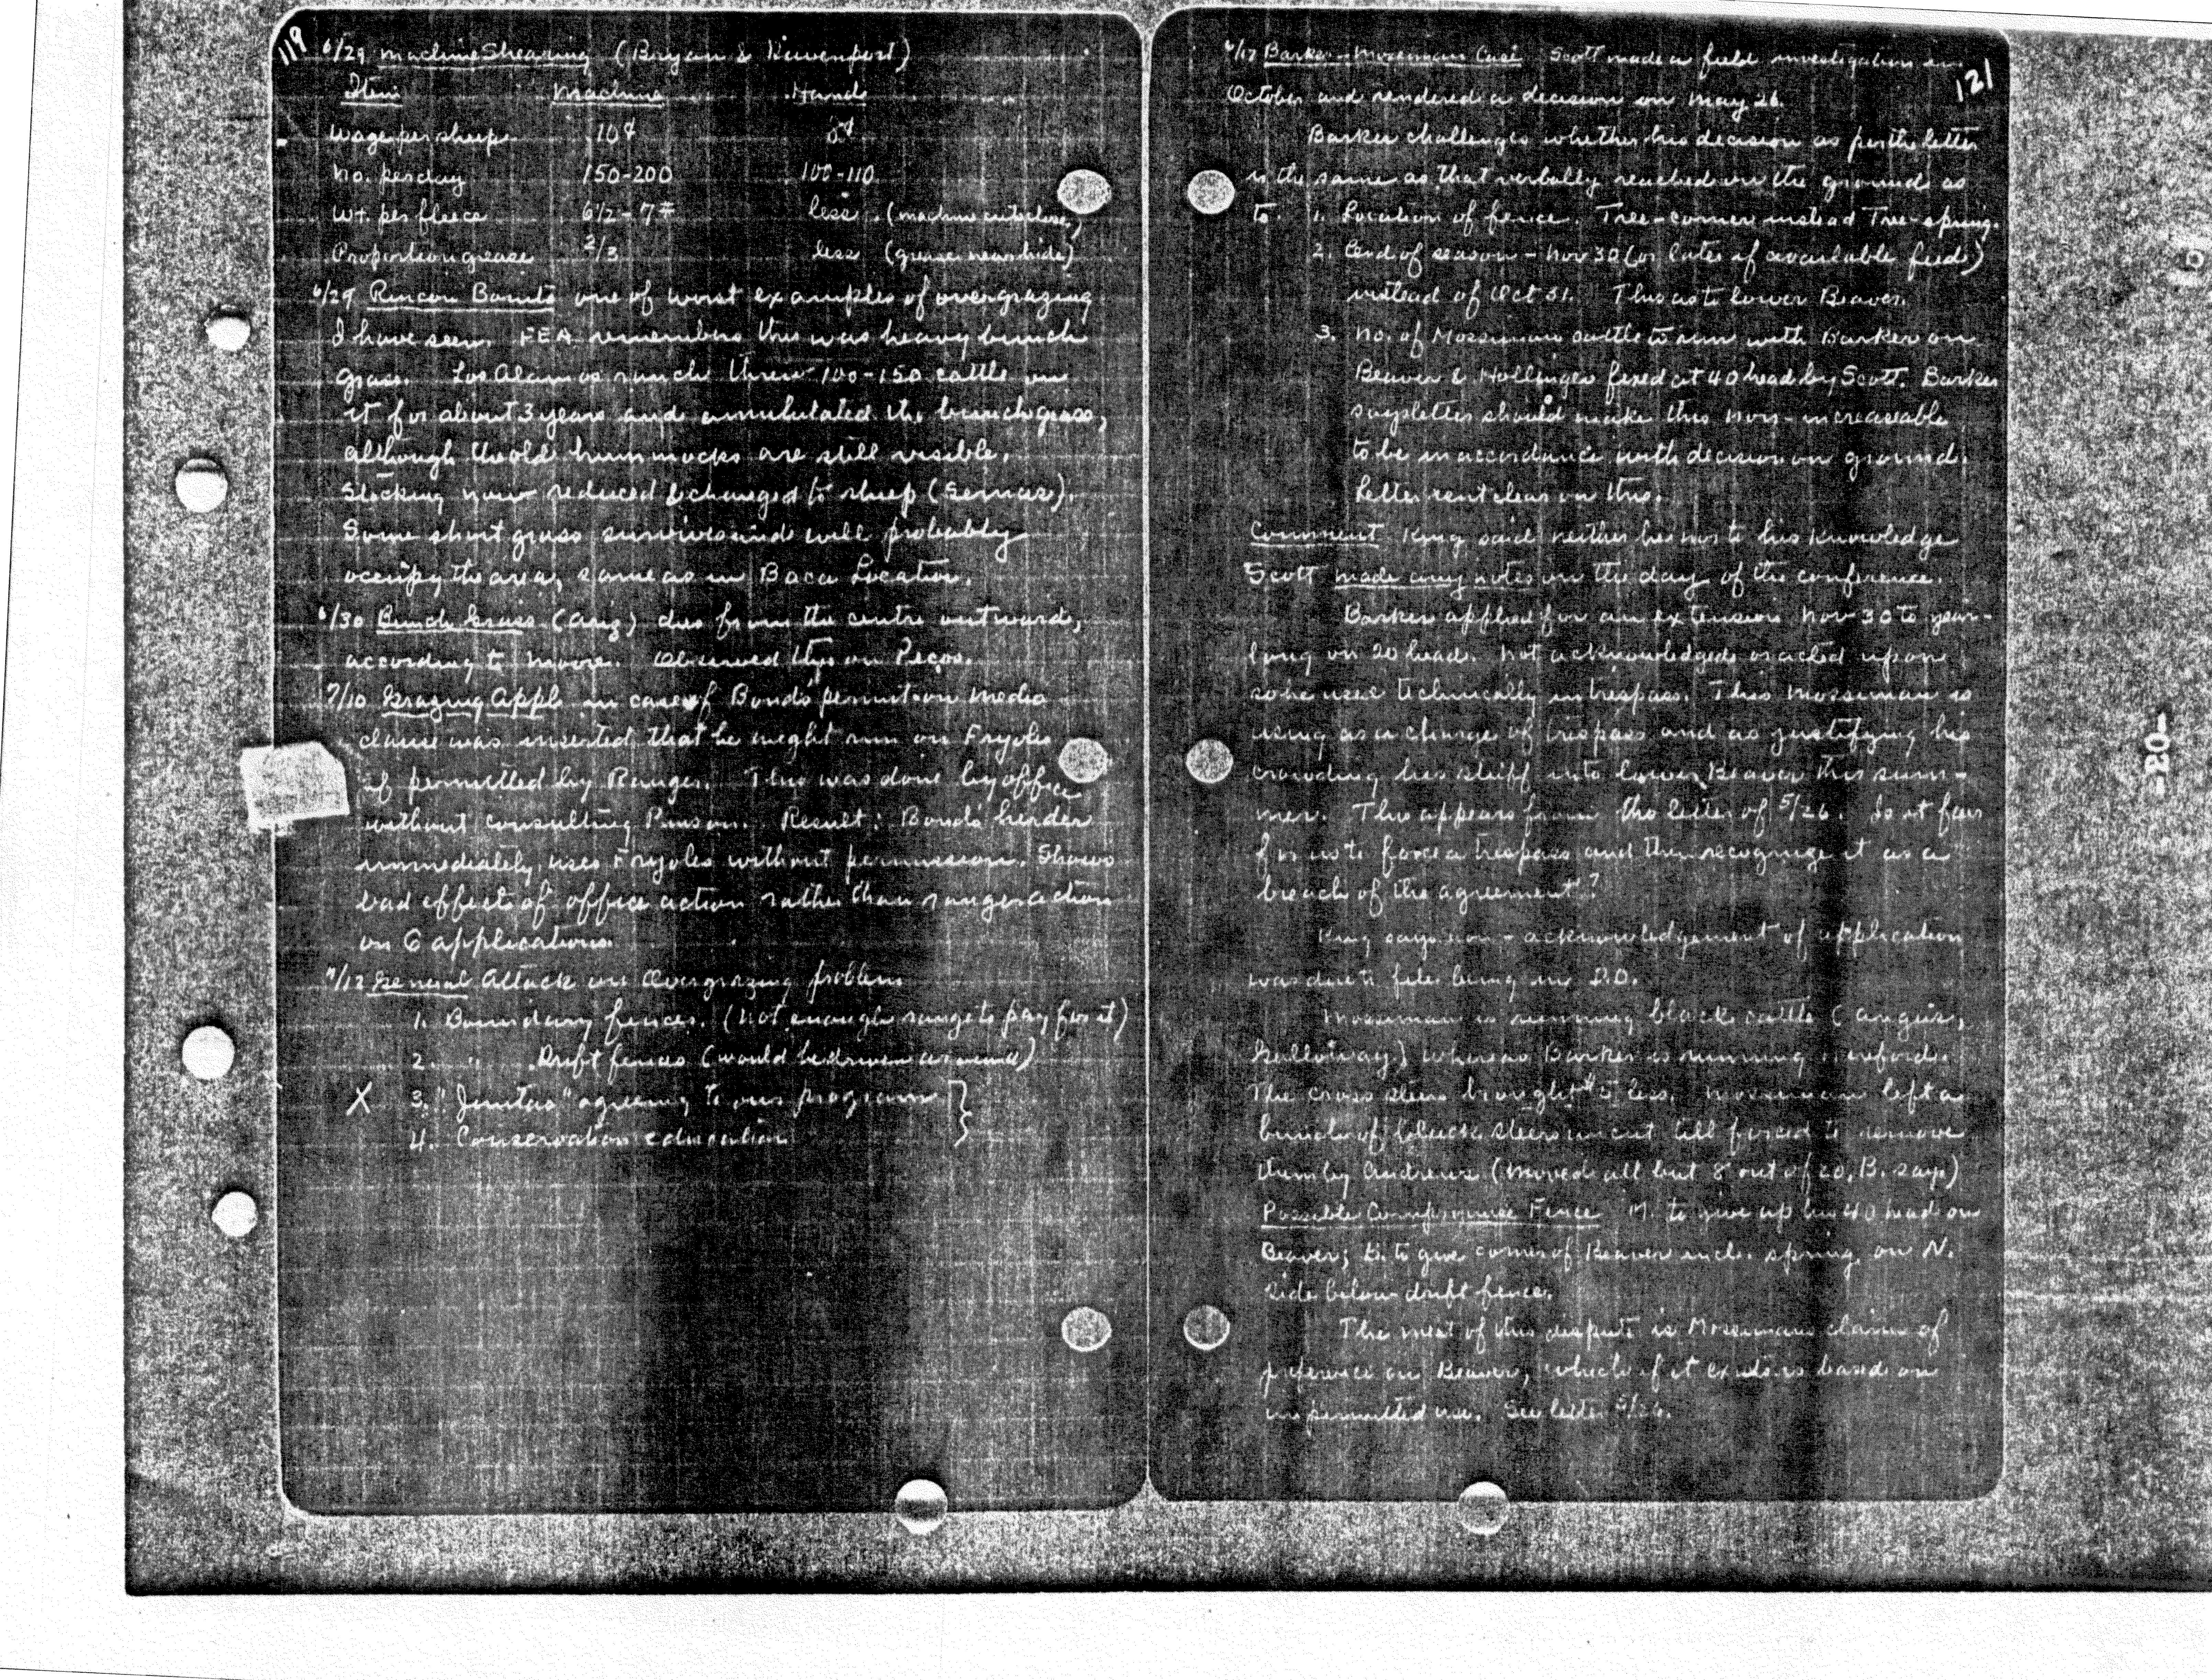 119
6/29 Machine Shearing (Bryan & Davenport)
Item Machine Hand
Wage per sheep 10¢ 8¢
No. per day 150-200 100-110
Wt. per fleece 6½-7# less (machine cuts closer)
Proportion grease 2/3 less (grease near hide)
6/29 Rincon Bonito one of worst examples of overgrazing
I have seen. FEA remembers this was heavy bunch
grass. Los Alamos ranch threw 100-150 cattle on
it for about 3 years and annihilated the bunch grass,
although the old hummocks are still visible.
Stocking now reduced & changed to sheep
Some short grass survives and will probably
occupy the area, same as in Baca Location.
6/30 Bunch Grass (Ariz) dies from the centre outward,
according to Moore. Observed this on Pecos.
7/10 Grazing Appl in case of Bond's permit on Medio
clause was inserted that he might run on Fryoles
if permitted by Ranger. This was done by office
without consulting Punson. Result: Bond's herder
immediately uses Fryoles without permission. Shows
bad effects of office action rather than ranger action
on G applications.
7/12 General Attack on Overgrazing problem
1. Boundary fences. (Not enough range to pay for it)
2. " Drift fences (would be driven around)
X 3. "Juntas" agreeing to our program
4. Conservation education
121
7/17 Barker-Mosseman Case Scott made a field investigation in
October and rendered a decision on May 26.
Barker challenges whether his decision as per the letter
is the same as that verbally reached on the grounds as
to: 1. Location of fence. Tree-corner instead Tree-spring.
2. End of season - Nov 30 (or later if available feed)
instead of Oct 31. This as to lower Beaver.
3. No. of Mosseman cattle to run with Barker on
Beaver & Hollinger fixed at 40 head by Scott. Barker
says letter should make this non-increaseable
to be in accordance with decision on ground.
Letter isnt clear on this.
Comment King said neither he nor to his knowledge
Scott made any notes on the day of the conference.
Barker applied for an extension Nov 30 to year-
long on 20 head. Not acknowledged or acted upon
so he used technically in trespass. This Mosseman is
using as a charge of trespass and as justifying his
crowding his stuff into lower Beaver this sum-
mer. This appears from the letter of 5/26. Is it fair
for us to force a trespass and then recognize it as a
breach of the agreement?
King says non-acknowledgement of application
was due to files being in D.O.
Mosseman is running black cattle (angus,
Galloway) whereas Barker is running hereford.
The cross steers brought $5 less. Mosseman left a
bunch of black steers uncut till forced to remove
them by Andrews (moved all but 8 out of 20, B. says)
Possible Compromise Fence M. to give up his 40 head on
Beaver; B. to give corner of Beaver incl. spring on N.
side below drift fence.
The meat of this dispute is Mosseman's claim of
preference on Beaver, which if it exists is based on
unpermitted use. See letter 5/26.
-20-